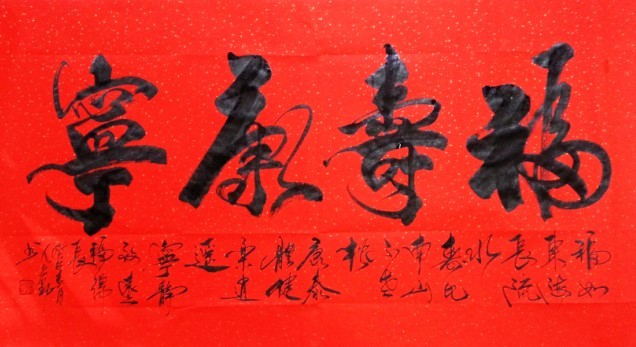 福壽康寧
福如
東海
長流
水
壽比
南山
不老
松
康泰
體健
遙
寧靜
致遠
福
長
書